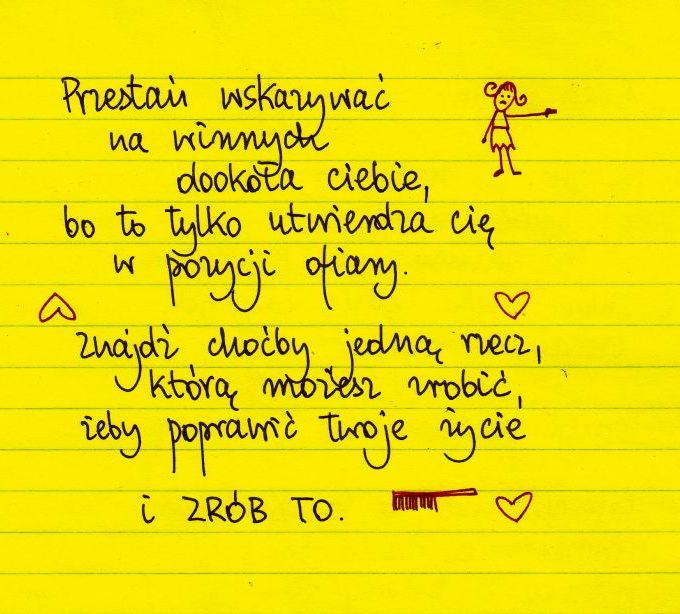 Przestań wskazywać
na winnych
dookoła ciebie,
bo to tylko utwierdza cię
w pozycji ofiary.
znajdź choćby jedną rzecz,
którą możesz zrobić,
żeby poprawić twoje życie
i ZRÓB TO.